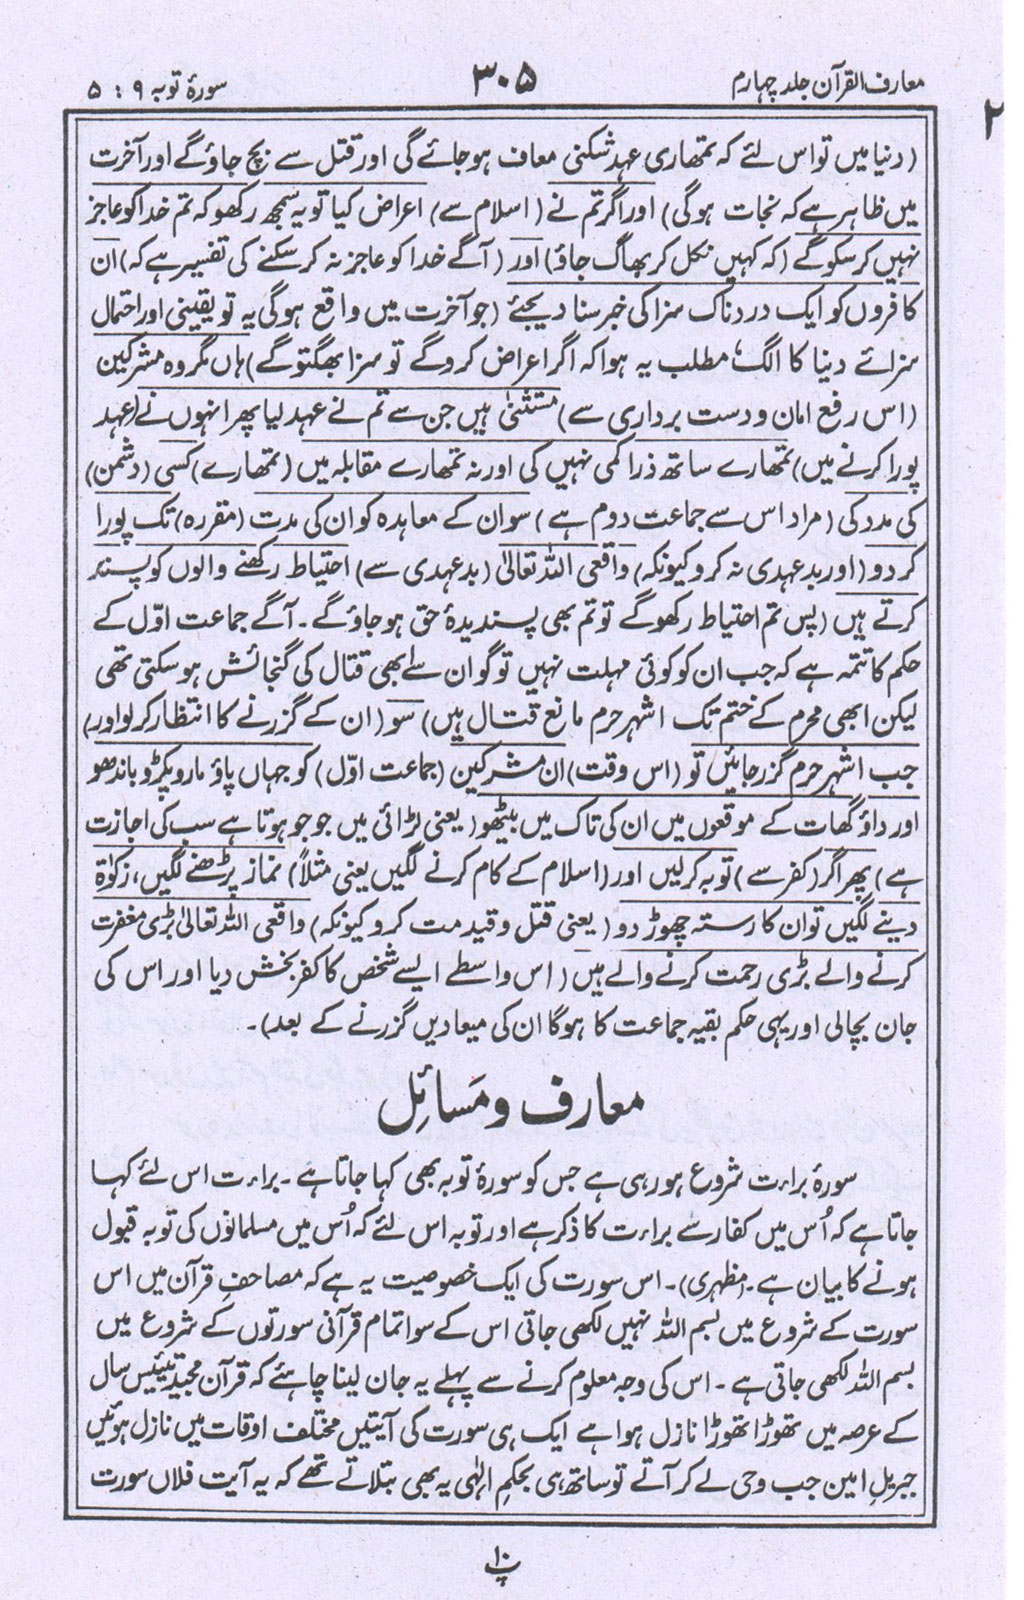 معارف القرآن جلد چہارم
۳۰۵
سورۂ توبہ ۹ : ۵
۲
(دنیا میں تو اس لئے کہ تمھاری عہد شکنی معاف ہو جائے گی اور قتل سے بچ جاؤ گے اور آخرت
میں ظاہر ہے کہ نجات ہوگی) اور اگر تم نے (اسلام سے) اعراض کیا تو یہ سمجھ رکھو کہ تم خدا کو عاجز
نہیں کر سکو گے (کہ کہیں نکل کر بھاگ جاؤ) اور (آگے خدا کو عاجز نہ کر سکنے کی تفسیر ہے کہ) ان
کافروں کو ایک دردناک سزا کی خبر سنا دیجئے (جو آخرت میں واقع ہوگی یہ تو یقینی اور احتمال
سزائے دنیا کا الگ، مطلب یہ ہوا کہ اگر اعراض کرو گے تو سزا بھگتو گے) ہاں مگر وہ مشرکین
(اس رفع امان و دست برداری سے) مستثنیٰ ہیں جن سے تم نے عہد لیا پھر انہوں نے (عہد
پورا کرنے میں) تمھارے ساتھ ذرا کمی نہیں کی اور نہ تمھارے مقابلہ میں (تمھارے) کسی (دشمن)
کی مدد کی (مراد اس سے جماعت دوم ہے) سو ان کے معاہدہ کو ان کی مدت (مقررہ) تک پورا
کر دو (اور بدعہدی نہ کرو کیونکہ) واقعی اللہ تعالیٰ (بدعہدی سے) احتیاط رکھنے والوں کو پسند
کرتے ہیں (پس تم احتیاط رکھو گے تو تم بھی پسندیدۂ حق ہو جاؤ گے۔ آگے جماعت اوّل کے
حکم کا تتمہ ہے کہ جب ان کو کوئی مہلت نہیں تو گو ان سے ابھی قتال کی گنجائش ہو سکتی تھی
لیکن ابھی محرم کے ختم تک اشہر حرم مانع قتال ہیں) سو (ان کے گزرنے کا انتظار کر لو اور)
جب اشہر حرم گزر جائیں تو (اس وقت) ان مشرکین (جماعت اوّل) کو جہاں پاؤ مارو پکڑو باندھو
اور داؤ گھات کے موقعوں میں ان کی تاک میں بیٹھو (یعنی لڑائی میں جو جو ہوتا ہے سب کی اجازت
ہے) پھر اگر (کفر سے) توبہ کر لیں اور (اسلام کے کام کرنے لگیں یعنی مثلاً) نماز پڑھنے لگیں، زکوٰۃ
دینے لگیں تو ان کا رستہ چھوڑ دو (یعنی قتل و قید مت کرو کیونکہ) واقعی اللہ تعالیٰ بڑی مغفرت
کرنے والے بڑی رحمت کرنے والے ہیں (اس واسطے ایسے شخص کا کفر بخش دیا اور اس کی
جان بچالی اور یہی حکم بقیہ جماعت کا ہوگا ان کی میعادیں گزرنے کے بعد)۔
معارف و مَسائِل
سورۂ براءت شروع ہو رہی ہے جس کو سورۂ توبہ بھی کہا جاتا ہے۔ براءت اس لئے کہا
جاتا ہے کہ اُس میں کفار سے براءت کا ذکر ہے اور توبہ اس لئے کہ اُس میں مسلمانوں کی توبہ قبول
ہونے کا بیان ہے۔ (مظہری)۔ اس سورت کی ایک خصوصیت یہ ہے کہ مصاحفِ قرآن میں اس
سورت کے شروع میں بسم اللہ نہیں لکھی جاتی اس کے سوا تمام قرآنی سورتوں کے شروع میں
بسم اللہ لکھی جاتی ہے۔ اس کی وجہ معلوم کرنے سے پہلے یہ جان لینا چاہئے کہ قرآن مجید تیئیس سال
کے عرصہ میں تھوڑا تھوڑا نازل ہوا ہے ایک ہی سورت کی آیتیں مختلف اوقات میں نازل ہوئیں
جبریلِ امین جب وحی لے کر آتے تو ساتھ ہی بحکمِ الٰہی یہ بھی بتلاتے تھے کہ یہ آیت فلاں سورت
پ۱۰